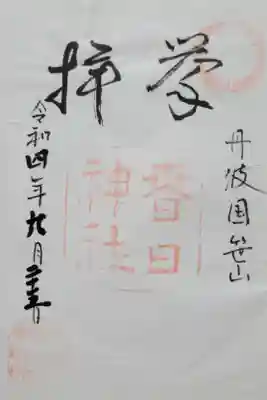 丹波国笹山
奉拝
春日
神社
令和四年九月二十五日